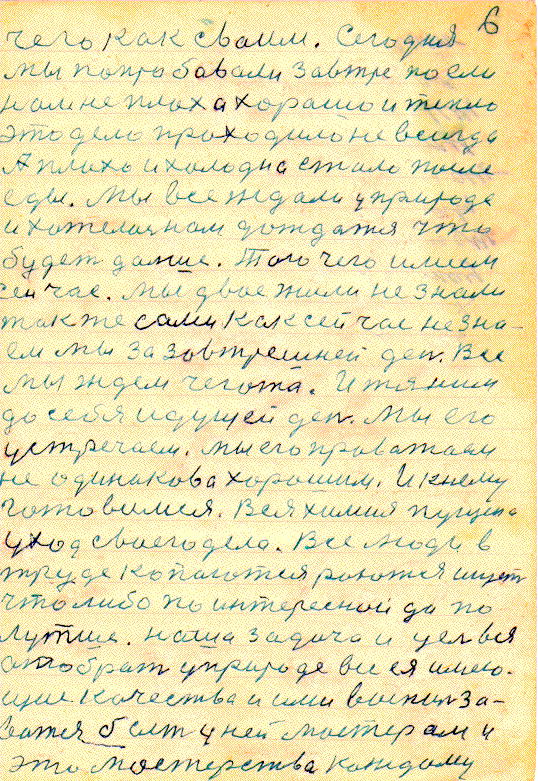 6
чего как своим. Сегодня
мы попробовали завтре поели
нам не плоха хорашо и тепло
это дело проходило не всегда
А плохо и холодна стало после
еды. Мы все ждали у природе
и хотело нам дождатя что
будет дальше. Того чего имеем
сейчас. Мы двое жили не знали
также сами как сейчас не зна-
ем мы за завтрешней ден. Все
мы ждем чегота. И тяним
до себя идущей ден. Мы его
устречаем. Мы его проважаем
не одинакова хорошим. И к нему
готовимся. Вся химия пущена
уход своего дела. Все люди в
труде копаются роются ищут
что либо по интересной да по
лутше. Наша задача и цел вся
отобрат у природе все ея имею-
щие качества и ими воспилза-
ватся быт у ней мастерам и
это мастерства каждому